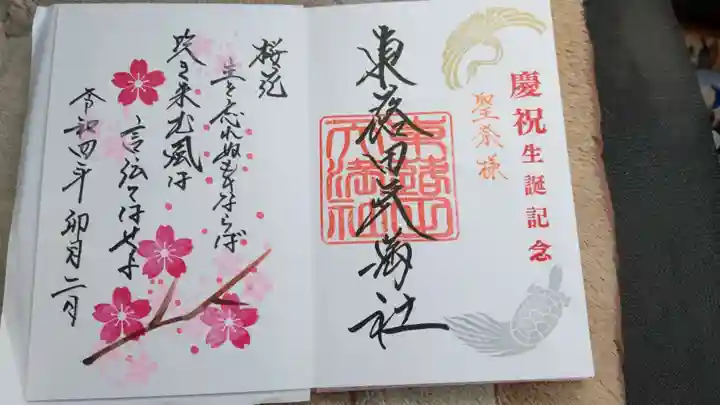 慶祝生誕記念
聖奈様
東蕗田天満社
東蕗田天満社
桜花
主を忘れぬものならば
吹き来む風に
言伝てはせよ
令和四年卯月二日